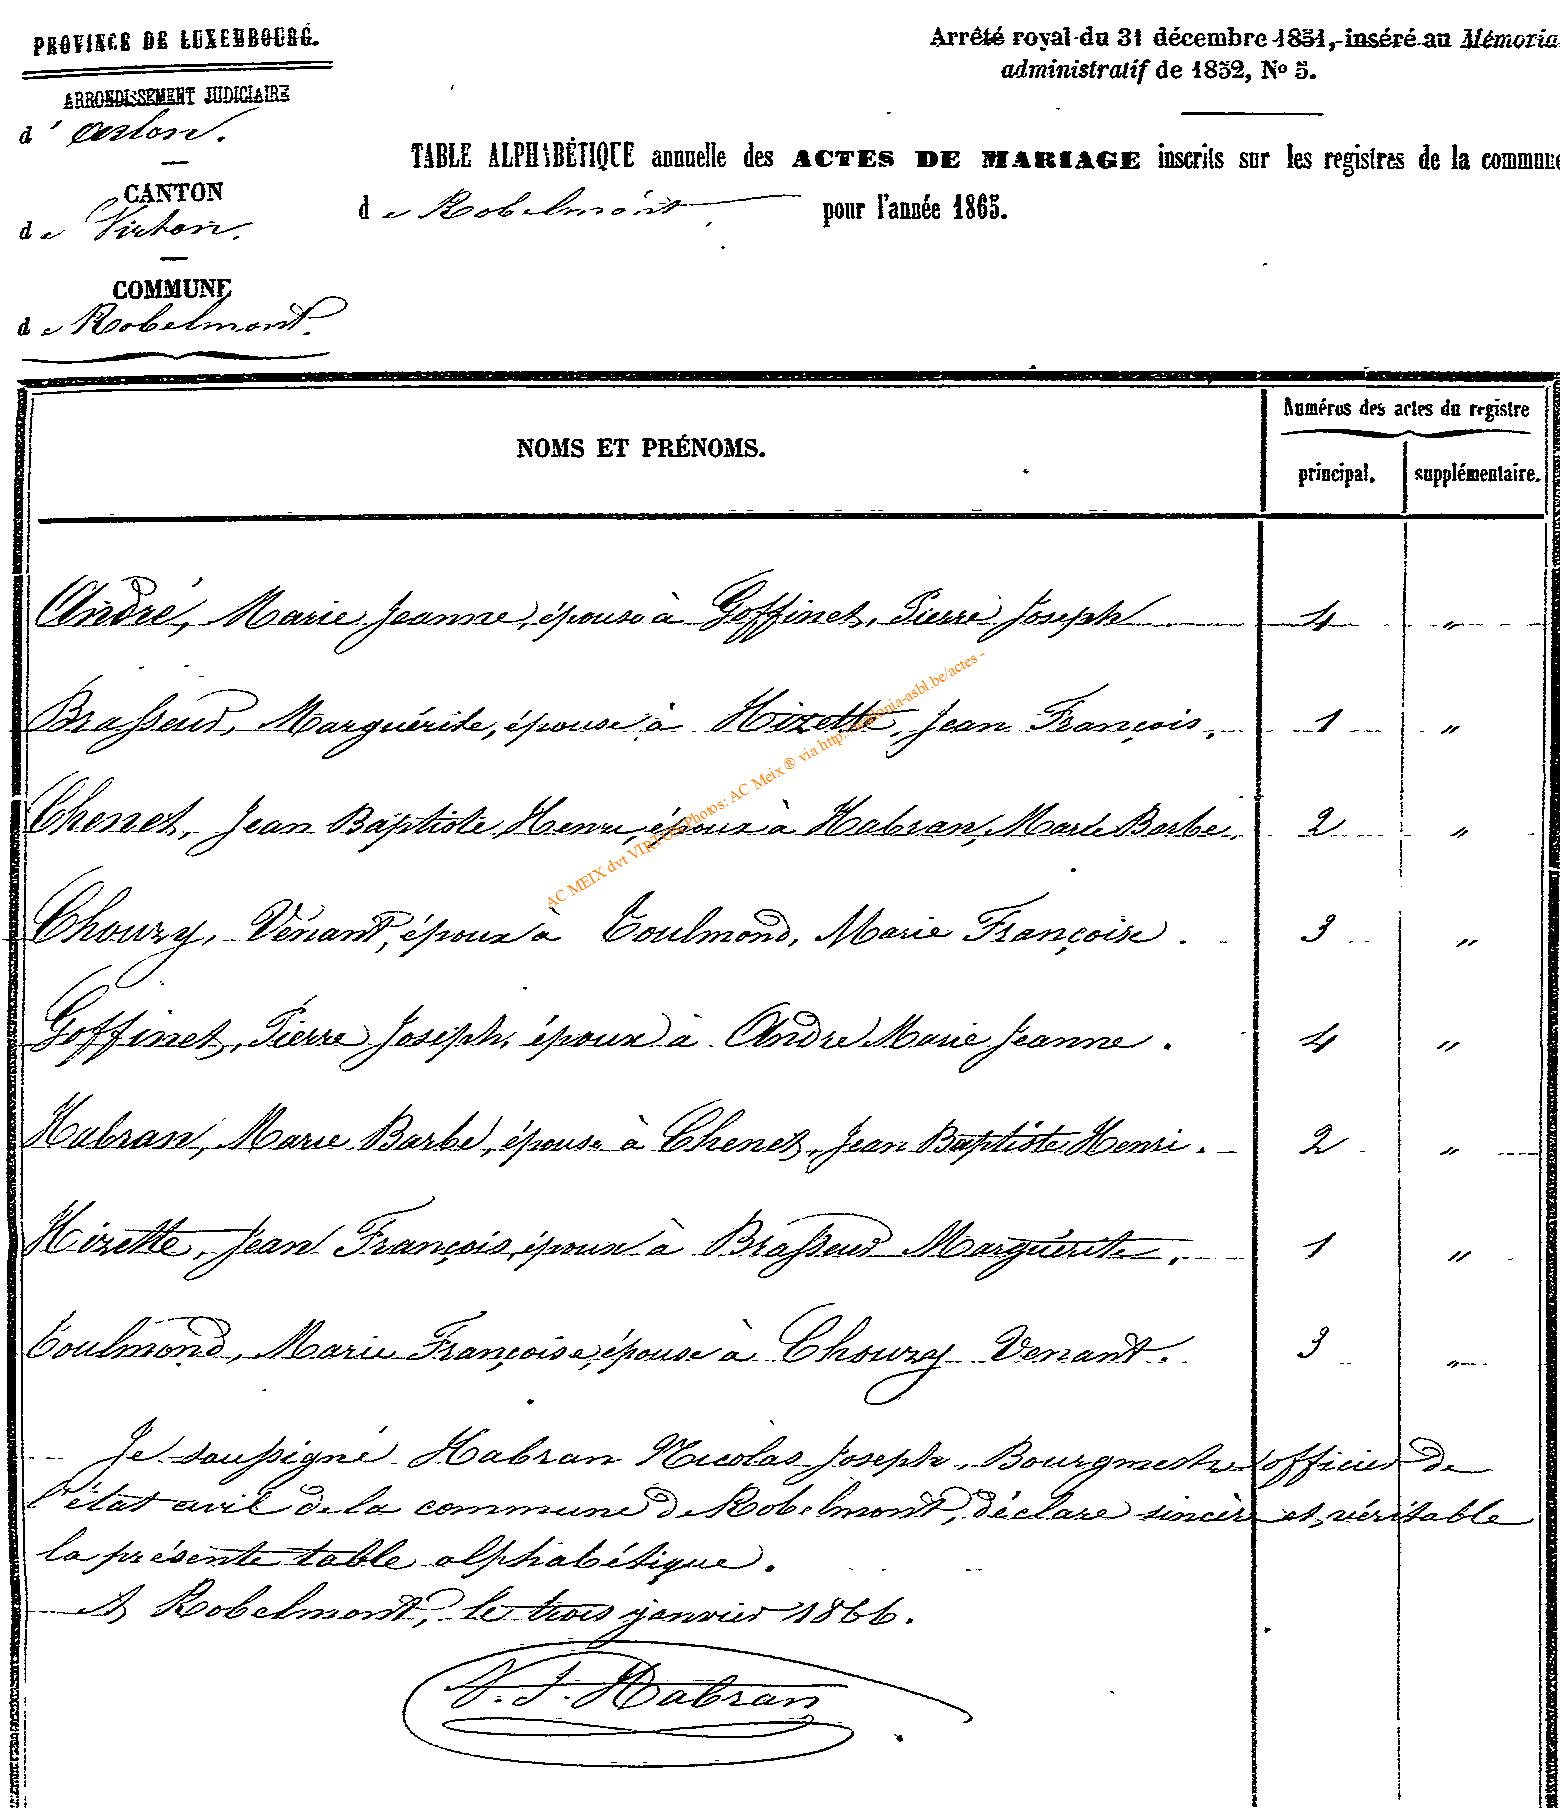 PROVINCE DE LUXEMBOURG.
ARRONDISSEMENT JUDICIAIRE
d'Arlon.
CANTON
de Virton.
COMMUNE
de Robelmont.
Arrêté royal du 31 décembre 1831, inséré au Mémoria
administratif de 1832, No 5.
TABLE ALPHABÉTIQUE annuelle des ACTES DE MARIAGE inscrits sur les registres de la commune
de Robelmont pour l'année 1865.
NOMS ET PRÉNOMS.
Numéros des actes du registre
principal. supplémentaire.
André, Marie Jeanne, épouse à Goffinet, Pierre Joseph 4 "
Brasseur, Marguérite, épouse à Hizette, Jean François. 1 "
Chenet, Jean Baptiste Henri, époux à Habran, Marie Barbe. 2 "
Chouzy, Vénant, époux à Toulmond, Marie Françoise. 3 "
Goffinet, Pierre Joseph, époux à André Marie Jeanne. 4 "
Habran, Marie Barbe, épouse à Chenet, Jean Baptiste Henri. 2 "
Hizette, Jean François, époux à Brasseur Marguérite. 1 "
Toulmond, Marie Françoise, épouse à Chouzy Venant. 3 "
Je soussigné Habran Nicolas Joseph, Bourgmestre officier de
l'état civil de la commune de Robelmont, déclare sincère et véritable
la présente table alphabétique.
A Robelmont, le trois janvier 1866.
N. J. Habran
AC MEIX dvt VIRTON Photos: AC Meix ® via http: -asbl.be/actes -